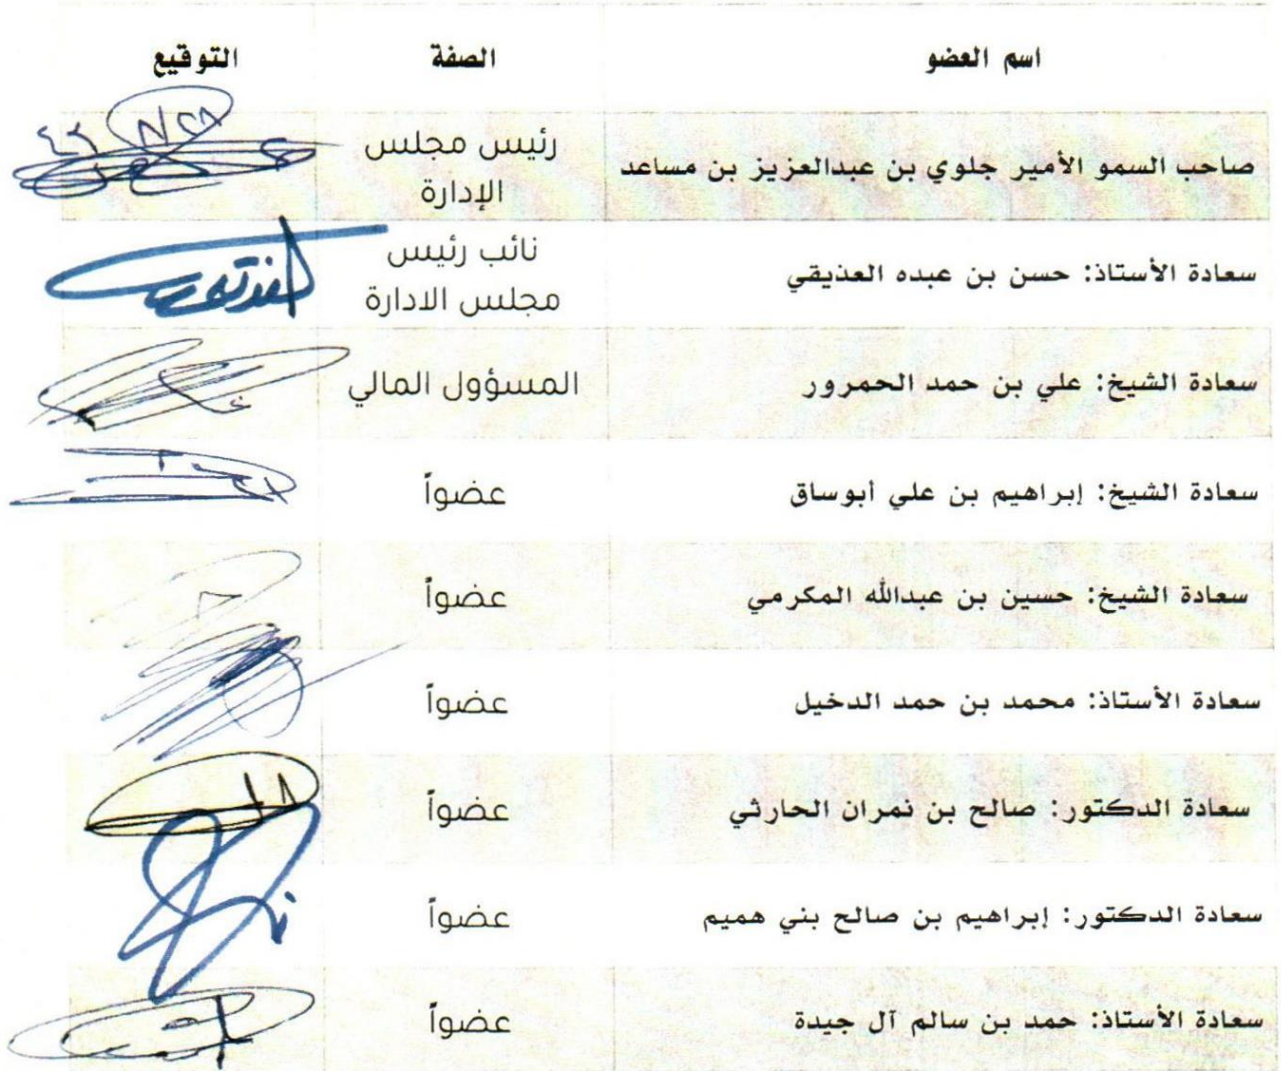 اسم العضو الصفة التوقيع
صاحب السمو الأمير جلوي بن عبدالعزيز بن مساعد رئيس مجلس
الإدارة
سعادة الأستاذ: حسن بن عبده العذيقي نائب رئيس
مجلس الادارة
سعادة الشيخ: علي بن حمد الحمرور المسؤول المالي
سعادة الشيخ: إبراهيم بن علي أبوساق عضواً
سعادة الشيخ: حسين بن عبدالله المكرمي عضواً
سعادة الأستاذ: محمد بن حمد الدخيل عضواً
سعادة الدكتور: صالح بن نمران الحارثي عضواً
سعادة الدكتور: إبراهيم بن صالح بني هميم عضواً
سعادة الأستاذ: حمد بن سالم آل جيدة عضواً